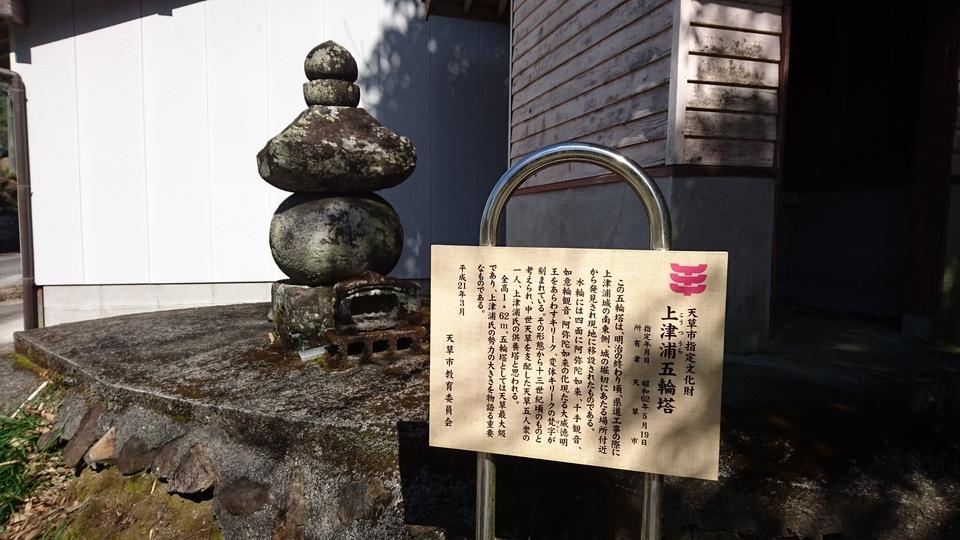 天草市指定文化財
こうつうら
上津浦五輪塔
指定年月日 昭和62年5月19日
所有者 天草市
この五輪塔は、明治の終わり頃、県道工事の際に
上津浦城の南東側、城の堀切にあたる場所付近
から発見され現地に移設されたものである。
水輪には四面に阿弥陀如来、千手観音、
如意輪観音、阿弥陀如来の化現たる大威徳明
王をあらわすキリーク、変体キリークの梵字が
刻まれている。その形態から十三世紀頃のものと
考えられ、中世天草を支配した天草五人衆の
一人、上津浦氏の供養塔と思われる。
全高1.62m、五輪塔としては天草最大級
であり、上津浦氏の勢力の大きさを物語る重要
なものである。
平成21年3月
天草市教育委員会